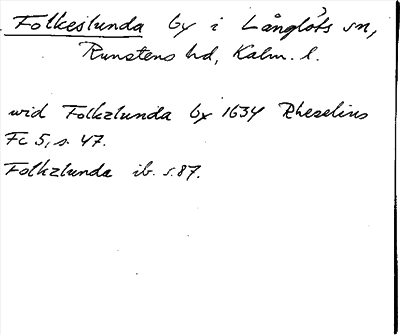 Folkeslunda by i Långlöts sn,
Runstens hd, Kalm. l.
wid Folkzlunda by 1634 Rhezelius
Fc 5, s. 47.
Folkzlunda ib. s. 87.